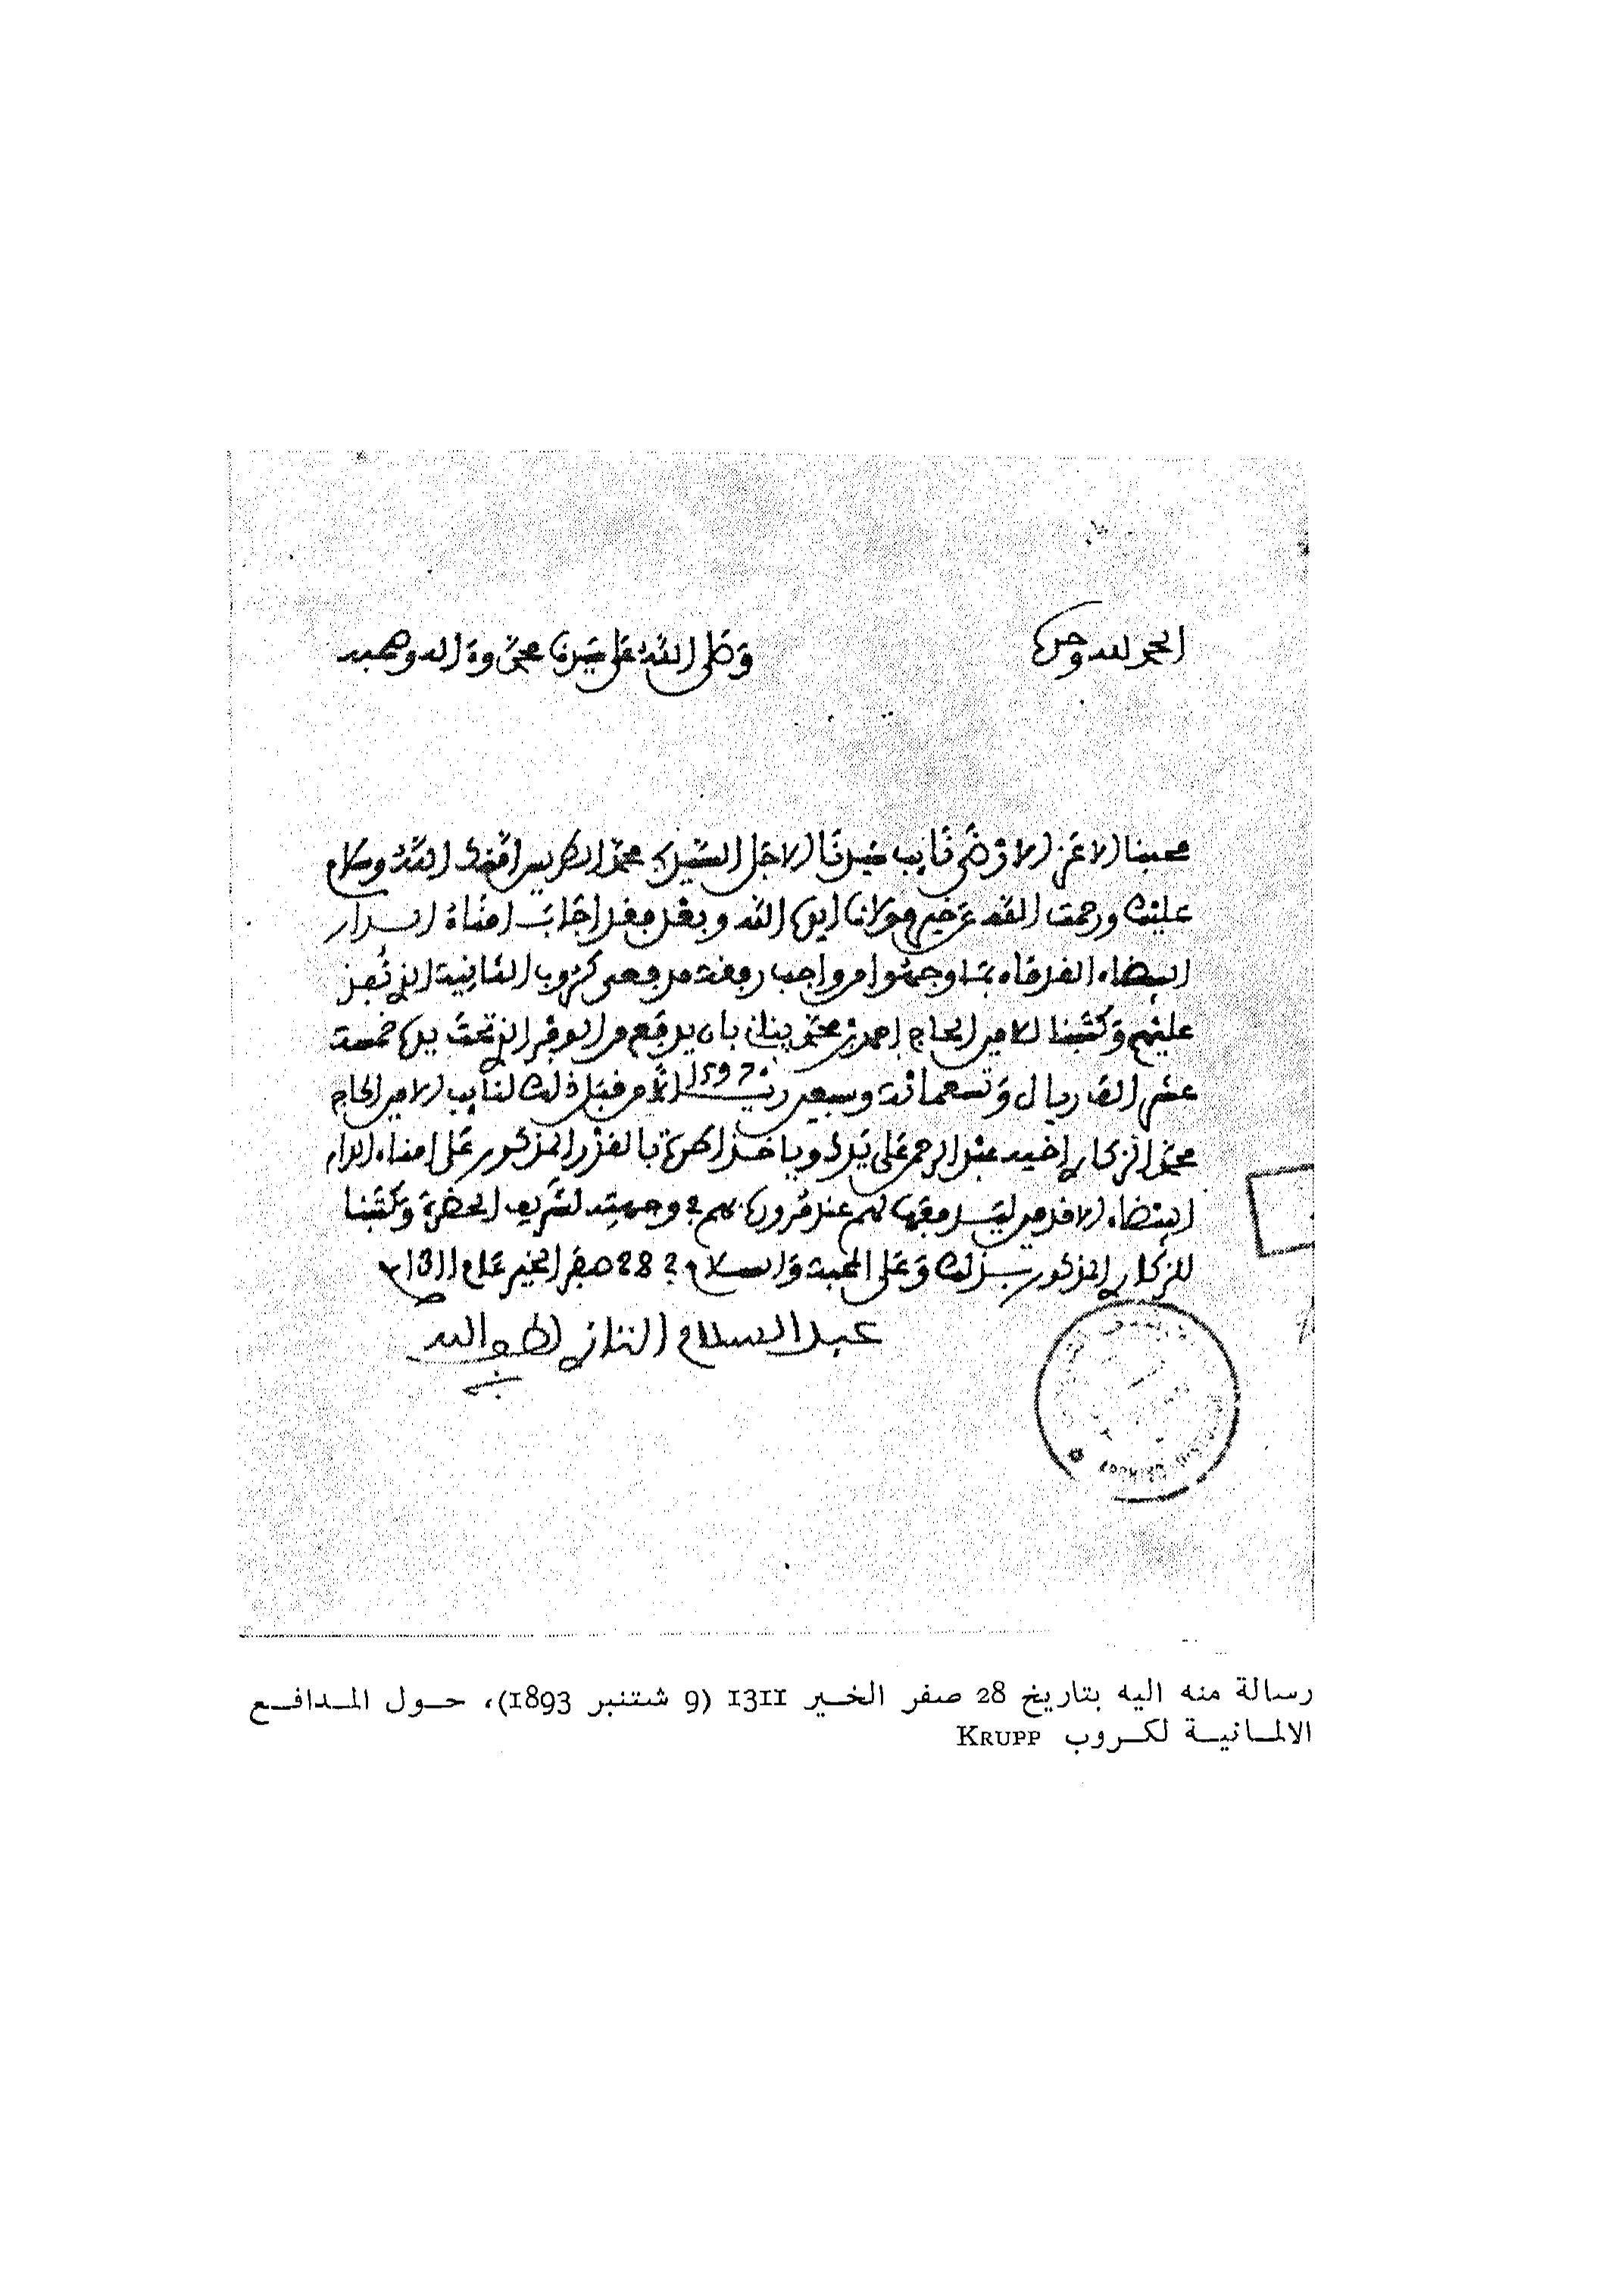 الحمد لله وحده
وصلى الله على سيدنا محمد وءاله وصحبه
محبنا الاعز الارضى نايب سيدنا الاجل السيد محمد الطريس امنك الله وسلام
عليك ورحمت الله عن خير مولانا ايده الله وبعد فقد اجاب امناء الدار
البيضاء القدماء بما وجهوا من واجب دفعة مدفعى كروب الثانية الذي نفذ
عليهم وكتبنا للامين الحاج احمد بن محمد بنانى بان يدفع من الوفر الذي تحت يده خمسة
عشر الف ريال وتسعمائة وسبعين ريـ 15970 لك من قبل ذلك لنايب الامين الحاج
محمد الزكاري اخيه عبد الرحمن على يدك وياخذ الحجة بالقدر المذكور على امناء الدار
البيضاء الاقدمين ليدفعها لهم عند مرورك بهم في وجهته لشريف الحضرة وكتبنا
للزكاري المذكور بذلك وعلى المحبة والسلام في 28 صفر الخير عام 1311
عبد السلام التازي لطف الله
به
رسالة منه اليه بتاريخ 28 صفر الخير 1311 (9 شتنبر 1893)، حول المدافع
الالمانية لكروب KRUPP